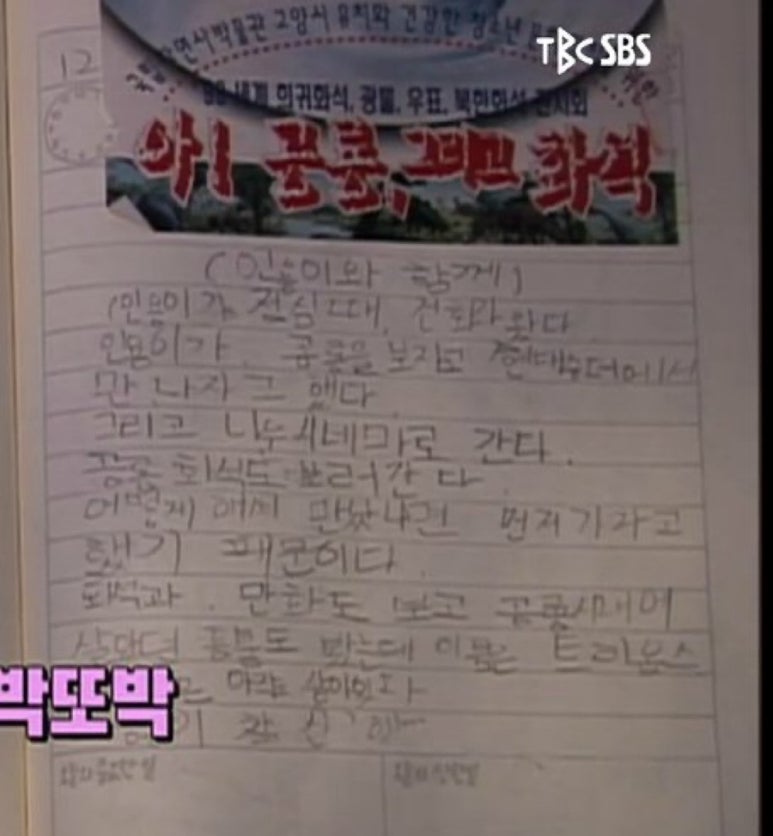 TBC SBS
자연사박물관 고양시 유치와 건강한 청소년
98 세계 희귀화석, 광물, 우표, 북한화석 전시회
아! 공룡, 그리고 화석
12
(인용이와 함께)
인용이가 점심때 전화가 왔다
인용이가 공룡을 보자고 현대슈퍼에서
만나자그 했다
그리고 나누시네마로 간다.
공룡 화석도 보러간다
어떻게 에서 만났냐면 먼저가라고
했기 때문이다.
화석과. 만화도 보고 공룡시대에
살았던 동물도 봤는데 이름은
아직도 살아있다
참
박또박